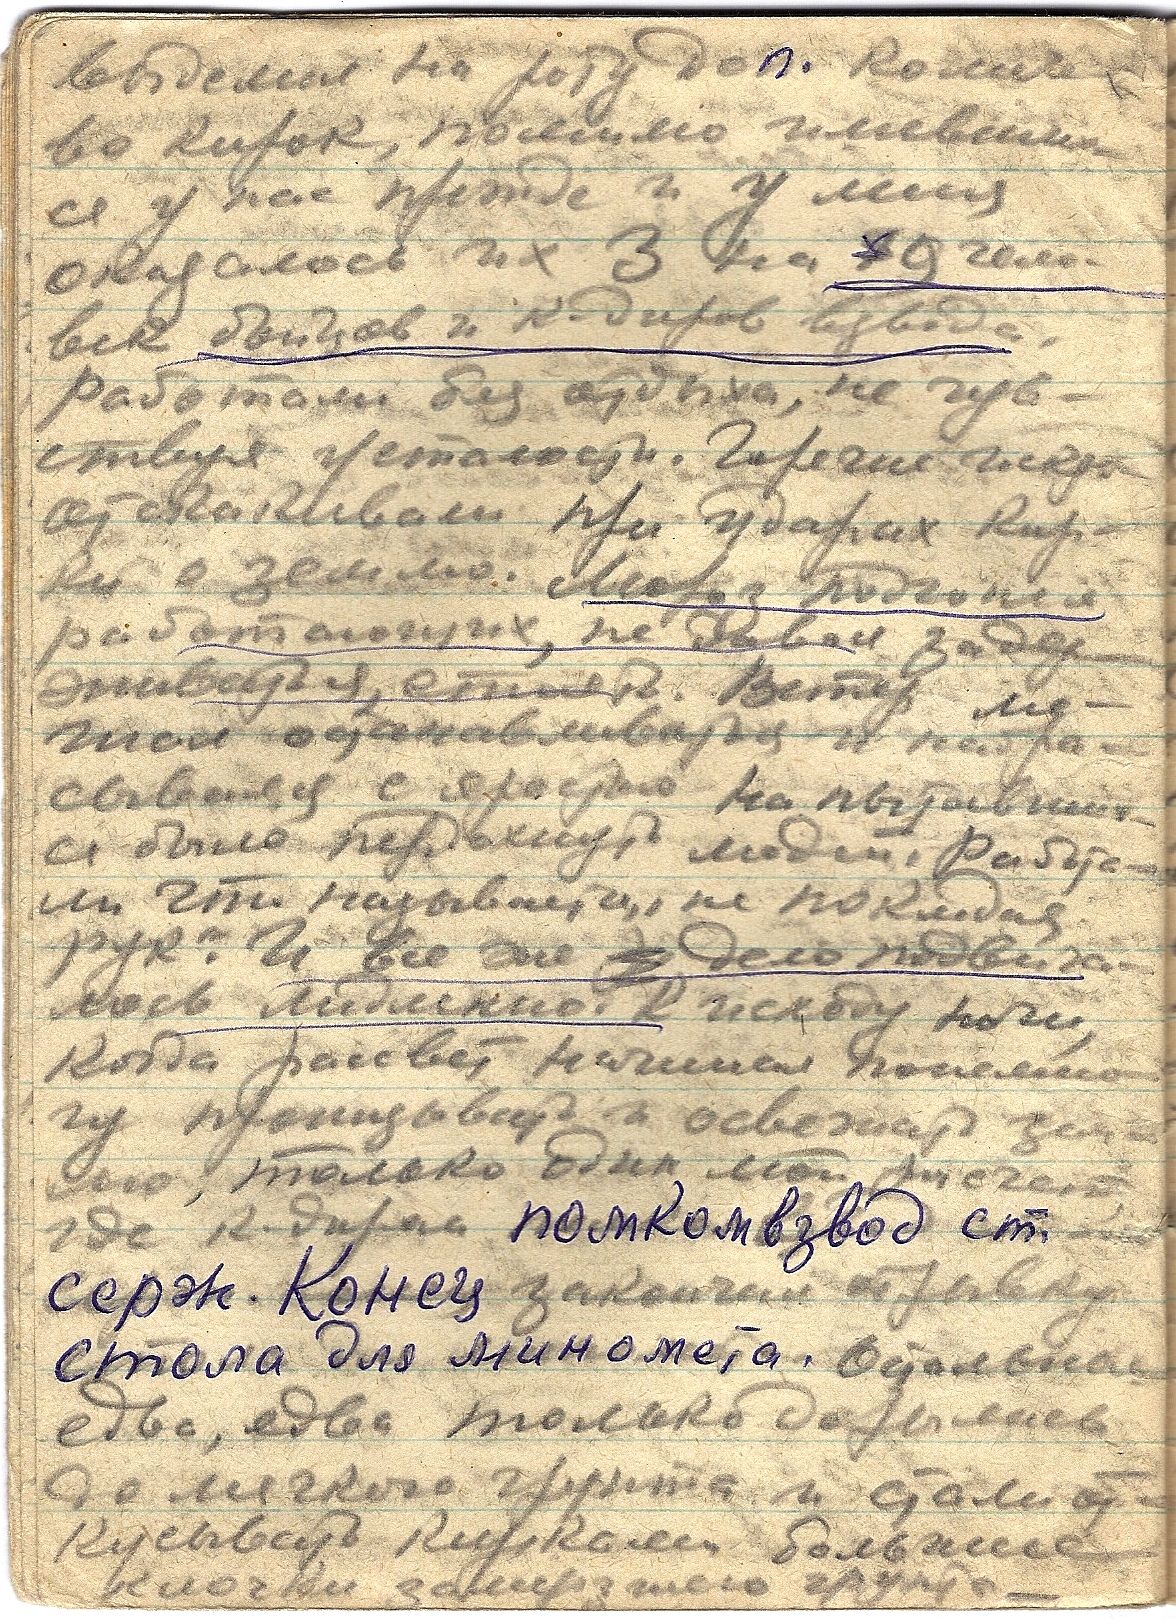 выделил на роту доп. количе
во кирок, помимо имевших
ся у нас прежде и у меня
оказалось их 3 на 10 чело-
век бойцов и к-диров взвода.
Работали без отдыха, не чув-
ствуя усталости. Горячие искры
отскакивали при ударах кир-
ки о землю. Мороз подгонял
работающих, не давая задер-
живаться, стоять. Ветер ме-
шал останавливаться и набра-
сывался с яростью на пытавших-
ся было передохнуть людей. Работа-
ли что называется, не покладая
рук". И все же дело подвига-
лось медленно. К исходу ночи,
когда рассвет начинал понемно
гу пронизывать и освежать зем
лю, только один мой расчет,
где к-диром помкомвзвод ст.
серж. Конец закончил отрывку
стола для миномета. Остальные
едва, едва только дорылись
до мягкого грунта и стали от-
кусывать кирками большие
клочки замерзшего грунта